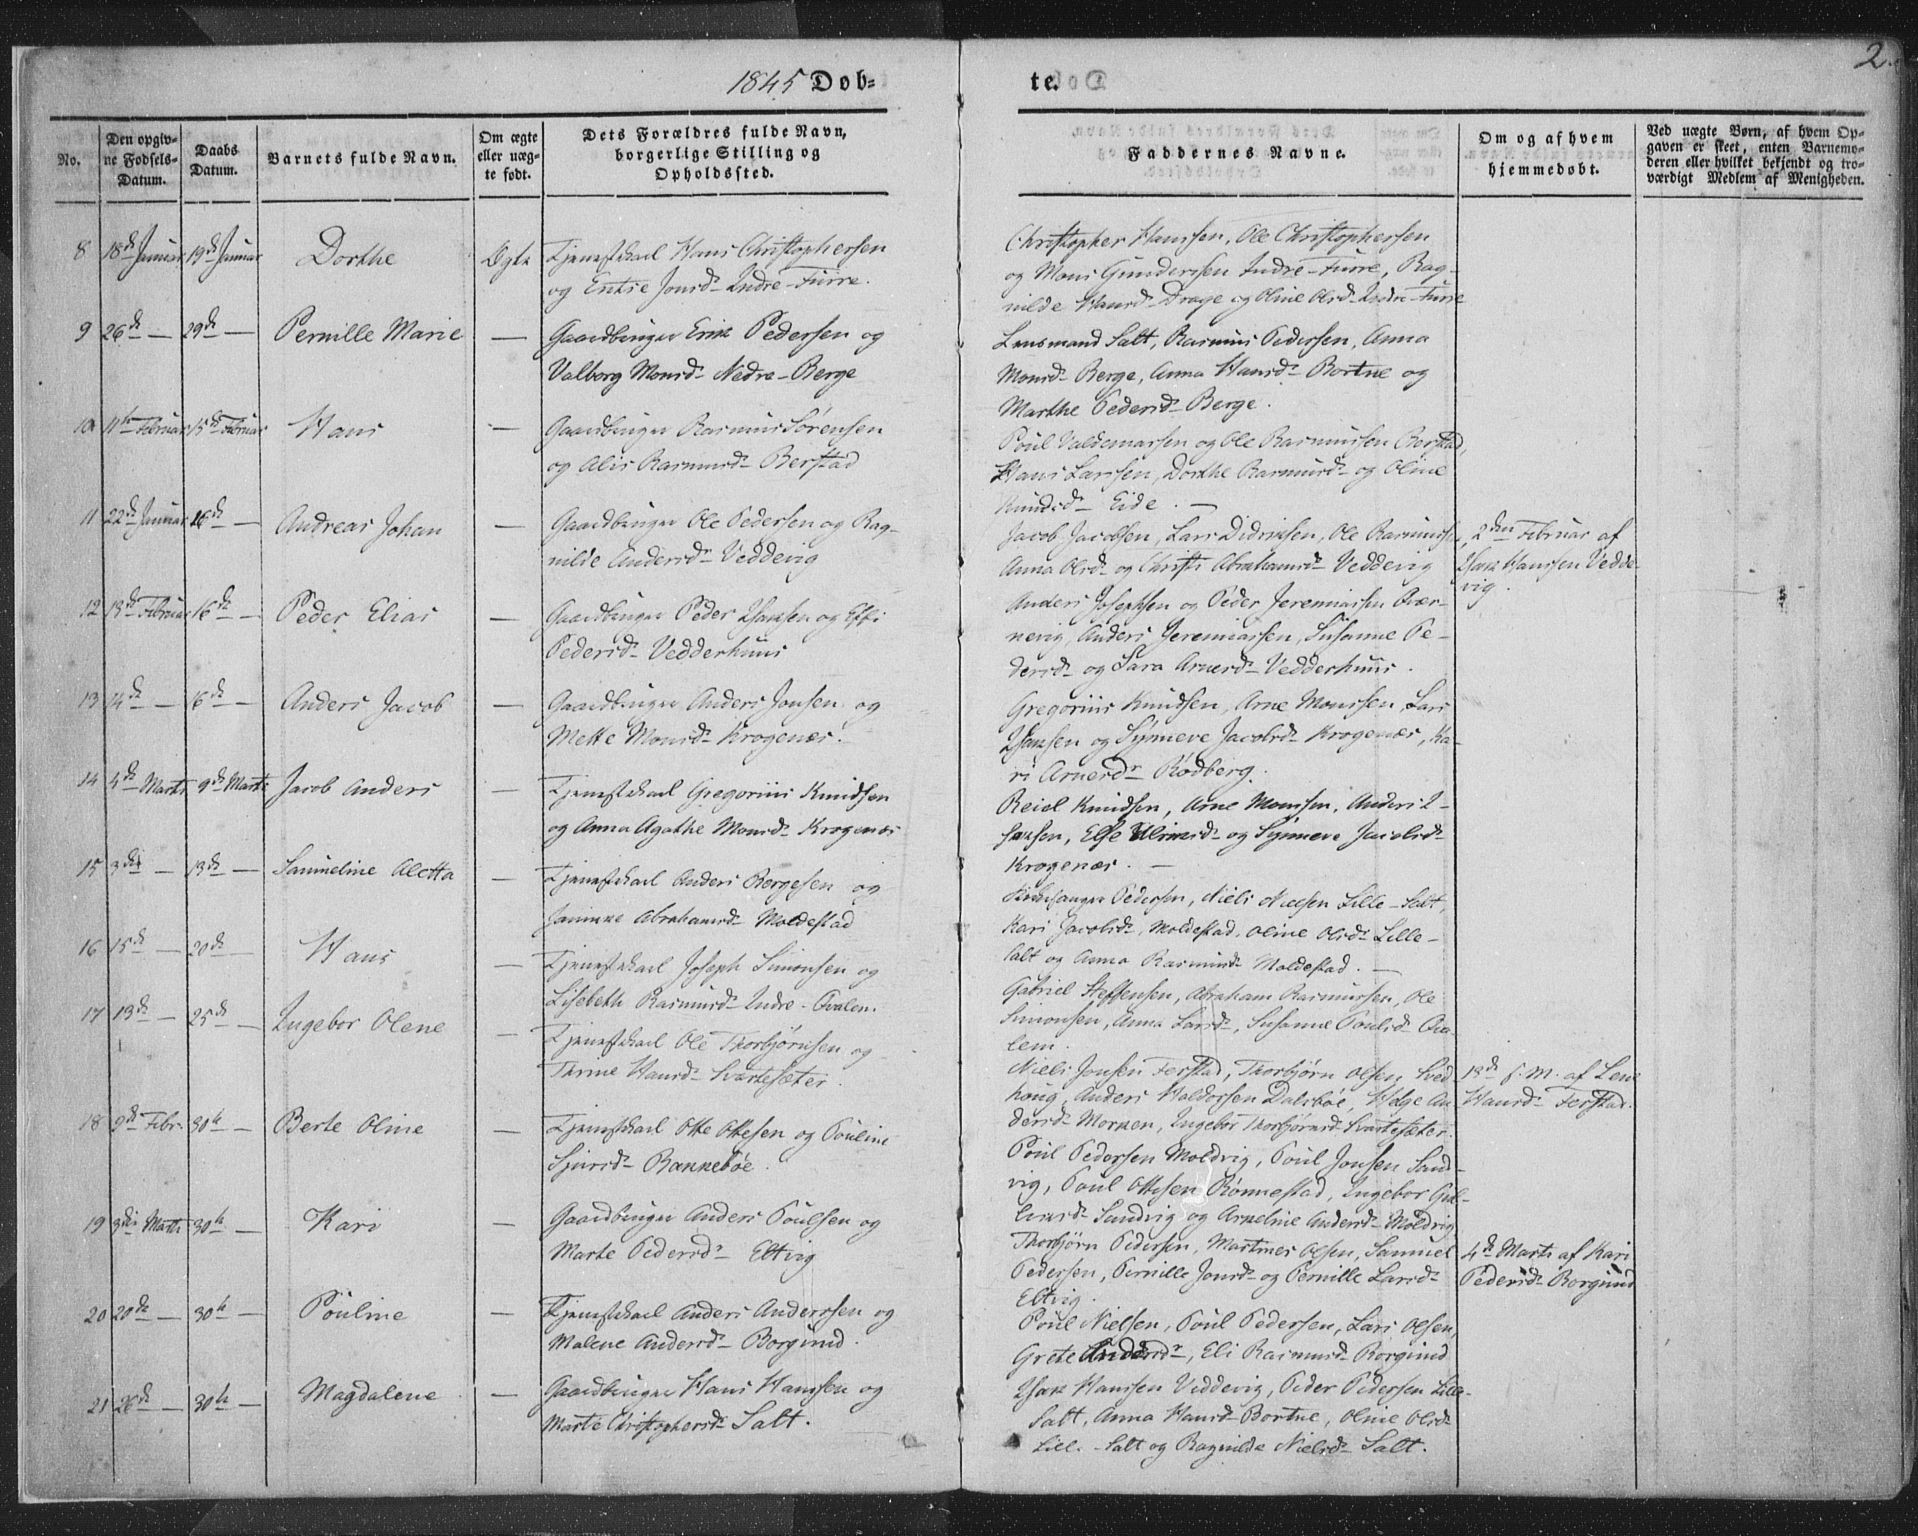 1845 Døb=
te.
2.
No.
Den opgiv-
ne Fødsels-
Datum.
Daabs
Datum.
Barnets fulde Navn.
Om ægte
eller uæg-
te født.
Dets Forældres fulde Navn,
borgerlige Stilling og
Opholdssted.
Faddernes Navne.
Om og af hvem
hjemmedøbt.
Ved uægte Børn, af hvem Op-
gaven er skeet, enten Barnemo-
deren eller hvilket bekjendt og tro-
værdigt Medlem af Menigheden.
8 18de Januar 19de Januar Dorthe Ægte Tjenestekarl Hans Christophersen
og Jonsd- Indre-Furre.
Christopher Hanssen, Ole Christophersen
og Mons Gunderssen Indre-Furre, Rag-
nilde Hansd- Drage og Oline Olsd- Indre-Furre
9 26de — 29de — Pernille Marie — Gaardbruger Erik Pedersen og
Valborg Monsd- Nedre-Berge
Lensmand Salt, Rasmus Pedersen, Anna
Monsd- Berge, Anna Hansd- Bortne og
Marthe Pedersd- Berge.
10 11te Februar 15de Februar Hans — Gaardbruger Rasmus Sørensen
og Alis Rasmusd- Berstad
Poul Valdemarsen og Ole Rasmussen Berstad,
Hans Larssen, Dorthe Rasmusd- og Oline
Knudsd- Eide. —
11 22de Januar 16de — Andreas Johan — Gaardbruger Ole Pedersen og Rag-
nilde Andersdr Veddevig
Jacob Jacobsen, Lars Didriksen, Ole Rasmussen,
Anna Olsd- og Christi Abrahamsd- Veddevig
2den Februar af
Isak Hanssen Vedde-
vig.
12 13de Februar 16de — Peder Elias — Gaardbruger Peder Isaksen og
Pedersd- Vedderhuus
Anders Josephsen og Peder Jeremiassen Qvær-
nevig, Anders Jeremiassen, Susanne Pe-
dersd- og Sara Arnesd- Vedderhuus.
13 14de — 16de — Anders Jacob — Gaardbruger Anders Jonsen og
Mette Monsd- Krogenæs.
Gregorius Knudsen, Arne Monssen, Lars
Isaksen og Synneve Jacobsd- Krogenæs, Ka-
ri Arnesdr Rødberg.
14 4de Marts 9de Marts Jacob Anders — Tjenestekarl Gregorius Knudsen
og Anna Agathe Monsd- Krogenæs
Knudsen, Arne Monssen, Anders I-
saksen, Else og Synneve Jacobsd-
Krogenæs. —
15 3die — 13de — Samueline Aletta — Tjenestekarl Anders Børgesen og
Abrahamsd- Moldestad
Kirkesanger Pedersen, Niels Nielsen Lille-Salt,
Kari Jacobsd- Moldestad, Oline Olsd- Lille-
Salt og Anna Rasmusd- Moldestad. —
16 15de — 20de — Hans — Tjenestekarl Joseph Simonsen og
Lisebeth Rasmusd- Indre-Hvalen.
Gabriel Steffensen, Abraham Rasmussen, Ole
Simonsen, Anna Larsd-, Susanne Poulsd- Hva-
len.
17 13de — 25de — Ingebor Olene — Tjenestekarl Ole Thorbjørnsen og
Trine Hansd- Svartesæter.
Niels Jonsen Ferstad, Thorbjørn Olsen
Anders Haldorsen Dalsbøe, Helge An-
dersd- Morken, Ingebor Thorbjørnsd- Svartesæter.
13de s. M. af Lene
Hansd- Ferstad.
18 9de Febr. 30te — Berte Oline — Tjenestekarl Otte Ottesen og Pouline
Sjursd- Bannebøe.
Poul Pedersen Moldvig, Poul Jonsen Sand-
vig, Poul Ottesen Rønnestad, Ingebor
Sandvig og Arneline Andersd- Moldvig
19 3die Marts 30te — Kari — Gaardbruger Anders Poulsen og
Marte Pedersd- Eltvig
Thorbjørn Pedersen, Martines Olsen, Samuel
Pedersen, Pernille Jonsd- og Pernille Larsd-
Eltvig.
4de Marts af Kari
Pedersd- Borgund
20 20de — 30te — Pouline — Tjenestekarl Anders Anderssen og
Malene Andersd- Borgund.
Poul Nielsen, Poul Pedersen, Lars Olsen,
Grete Andersdr, Eli Rasmusd- Borgund
21 26de — 30te — Magdalene — Gaardbruger Hans Hanssen og
Marte Christophersdr Salt.
Isak Hanssen Veddevig, Peder Pedersen Lille-
Salt, Anna Hansd- Bortne, Oline Olsd-
Lille-Salt og Ragnilde Nielsd- Salt.